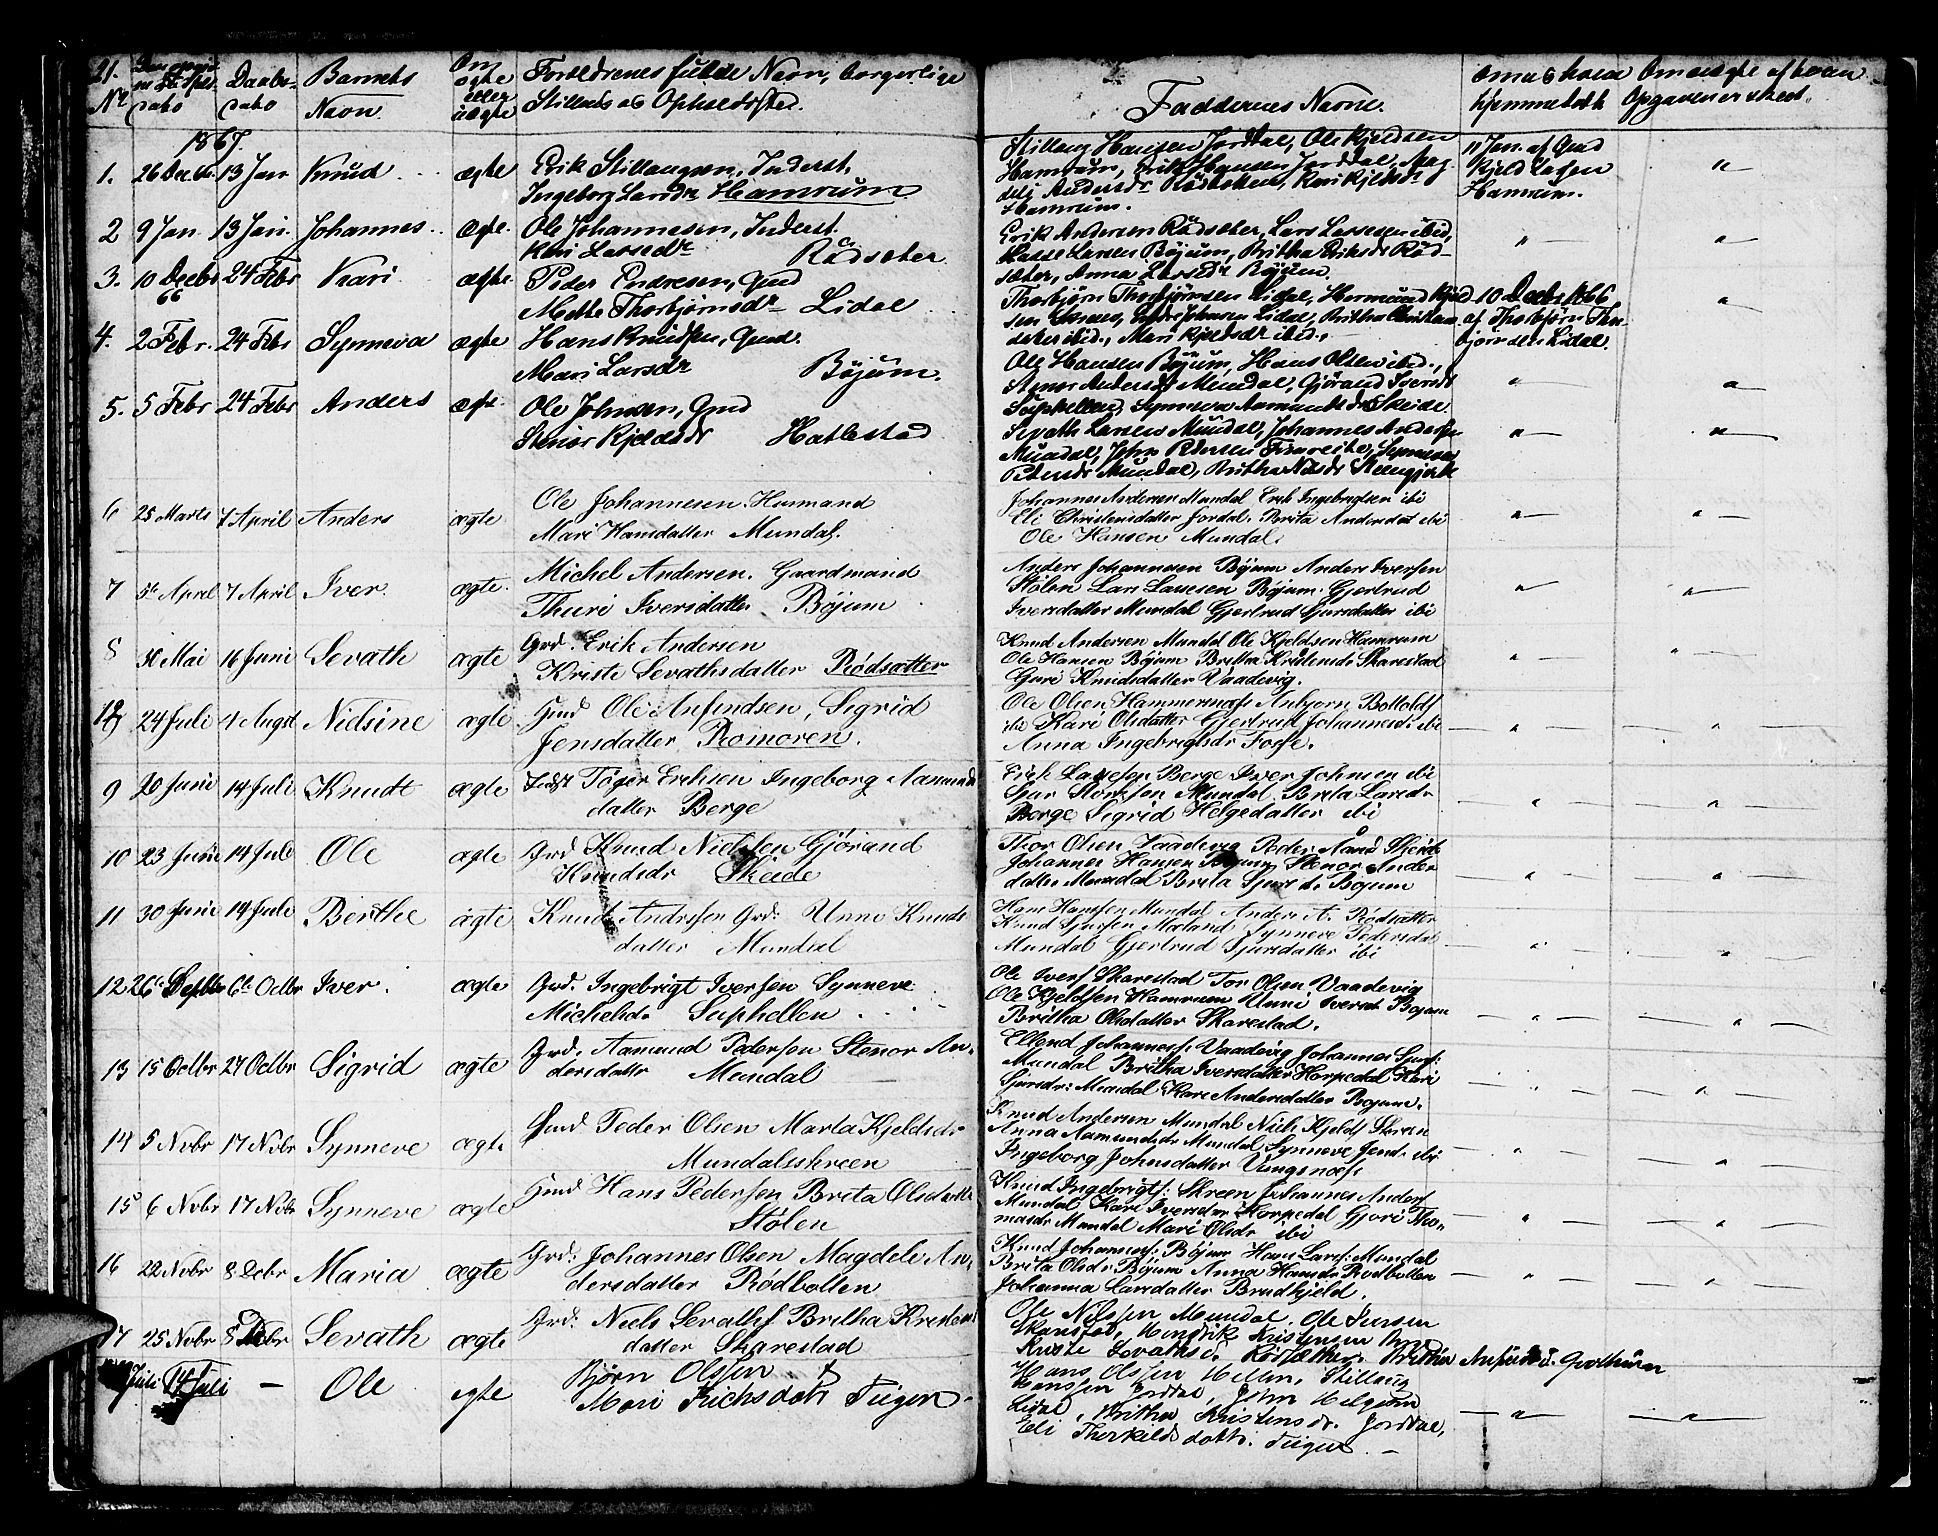 21.
No
Daabs-
dato
Barnets
Navn.
Om
ægte
eller
uægte
Forældrenes fulde Navn, borgerlige
Stilling og Opholdssted.
Faddernes Navne.
1867.
1. 26 Dec 66. 13 Jan Knud ægte Erik Stillaugsen, Inderst,
Ingeborg Larsdr Hamrum
Stillaug Hansen Jordal, Ole Kjeldsen
Hamrum, Erik Hansen Jorddal, Mag
deli Andersdr Rödbotten, Kari Kjeldsdr
Hamrum.
11 Jan. af Gmd
Kjeld Larsen
Hamrum.
2 9 Jan 13 Jan. Johannes ægte. Ole Johannesen, Inderst.
Kari Larsdr Rødsæter
Erik Andersen Rødsæter, Lars Larsen ibid,
Lasse Larsen Böjum, Britha Eriksdr Röd-
sæter, Anna Larsdr Böjum.
3. 10 Decbr 66 24 Febr Kari ægte. Peder Endresen, Gmd
Mette Thorbjörnsdr Lidal
Thorbjörn Thorbjörnsen Lidal, Hermund Kjeld-
sen
ibid., Mari Kjeldsdr ibid.
10 Decbr 1866
af Thorbjörn Thor-
björnsen Lidal.
4. 2 Febr. 24 Febr Synneva ægte Hans Knudsen, Gmd.
Mari Larsdr Böjum.
Ole Hansen Böjum, Hans Olsen ibid.,
Stenor Andersdr Mundal, Gjörand Iversdr
Suphellen, Synneva Aamundsdr Skeide.
5. 5 Febr 24 Febr Anders ægte. Ole Johnsen, Gmd
Stenor Kjeldsdr Hatlestad
Sevath Larsen Mundal, Johannes Andersen
Mundal, John Pedersen Fimreite, Synneva
Pedersdr Mundal, Britha Nilsdr
6 25 Marts 7 April Anders ægte. Ole Johannesen. Husmand
Mari Hansdatter Mundal.
Johannes Andersen Mundal Erik Ingebrigtsen ibi
Eli Christensdatter Jordal. Berita Andersdat ibi
Ole Hansen Mundal.
7 5te April 7 April Iver. ægte. Michel Andersen. Gaardmand
Thuri Iversdatter Böjum
Anders Johannesen Böjum Anders Iversen
Stölen Lars Lassesen Böjum. Gjertrud
Iversdatter Mundal Gjertrud Sjursdatter ibi
8 Mai 16 Juni Sevath ægte Grd: Erik Andersen
Kriste Sevathsdatter Rødsætter
Knud Andersen Mundal Ole Kjeldsen Hamrum
Ole Hansen Böjum Britha Kristensdr Skarestad
Guri Knudsdatter Vaadevig.
24 Juli 4 Augst Nielsine ægte Hmd Ole Anfindsen, Sigrid
Jensdatter Romoren.
Ole Olsen Hammersnæs Anbjorn Botholds
ibi Kari Olsdatter Gjertrud Johannesd: ibi
Anna Ingebrigtsdr Fosse.
9 20 Juni 14 Juli Knudt ægte Töger Eriksen Ingeborg Aamunds
datter Berge
Erik Lassesen Berge Iver Johnsen ibi
Sjur Mundal Brita Larsdr
Berge Sigrid Helgedatter ibi
10 23 Juni 14 Juli Ole ægte Grd Knud Nielsen Gjörand
Knudsdr Skeide
Thor Olsen Vaadevig Peder Skeide
Johannes Hansen Böjum Stenor Anders
datter Mundal Brita Sjursd: Bojum
11 30 Juni 14 Juli Berthe ægte Knud Andersen Grd: Unni Knuds
datter Mundal
Hans Hanssen Mundal Anders A. Rødsætter
Knud Sjursen Mæland Synneve Pedersdat
Mundal Gjertrud Sjursdatter ibi
12 26 Septbr 6te Octbr Iver. ægte Grd. Ingebrigt Iversen Synneve
Michelsd. Suphellen.
Ole Ivers Skarestad Tor Olsen Vaadevig
Ole Kjeldsen Hamrum Unni Iversd Bojum
Britha Olsdatter Skarestad.
13 15 Octbr 27 Octbr Sigrid ægte Grd. Aamund Pedersen Stenor An-
dersdatr Mundal
Ellend Johanness: Vaadevig Johannes Sjurs:
Mundal Britha Iversdatter Horpedal Kari
Sjursdr: Mundal Kari Andersdatter Bojum.
14 5 Nvbr 17 Nvbr Synneve ægte Hmd Peder Olsen Marta Kjeldsdr
Mundalsskreen
Knud Andersen Mundal Niels Kjelds Skreen
Anna Aamundsdr Mundal Synneve Jensd: ibi
Ingeborg Johnsdatter Vangsnæs.
15 6 Nvbr 17 Nvbr Synneve ægte Hmd Hans Pedersen Brita Olsdatter
Stølen
Knud Ingebrigts: Skreen Johannes Anders
Mundal Kari Iversdr Horpedal Gjori Tho-
masdr Mundal Mari Olsdr ibi
16 22 Nvbr 8 Decbr Maria ægte Grd: Johannes Olsen Magdeli An-
dersdatter Rødbotten
Knud Johanness: Böjum Hans Lars: Mundal
Brita Olsdr Böjum Anna Hansdr Rodbotten
Johanna Larsdatter Bradkjeld.
17 25 Nvbr 8 Sevath ægte Grd: Niels Sevaths Britha Kristens
datter Skarestad
Ole Nilssen Mundal, Ole Jensen
Skarestad, Hendrik Kristensen
Kriste Sevathsd. Rödsæther. Britha Anfindsd.
Juli 14 Juli — Ole egte Björn Olssen
Mari Erichsdatr Tuigen
Hans Olssen Stillaug
Hanssen Jordal, John Helgesen
Lidal, Britha Kristensdr. Jorddal,
Eli Therkildsdattr. Tuigen —